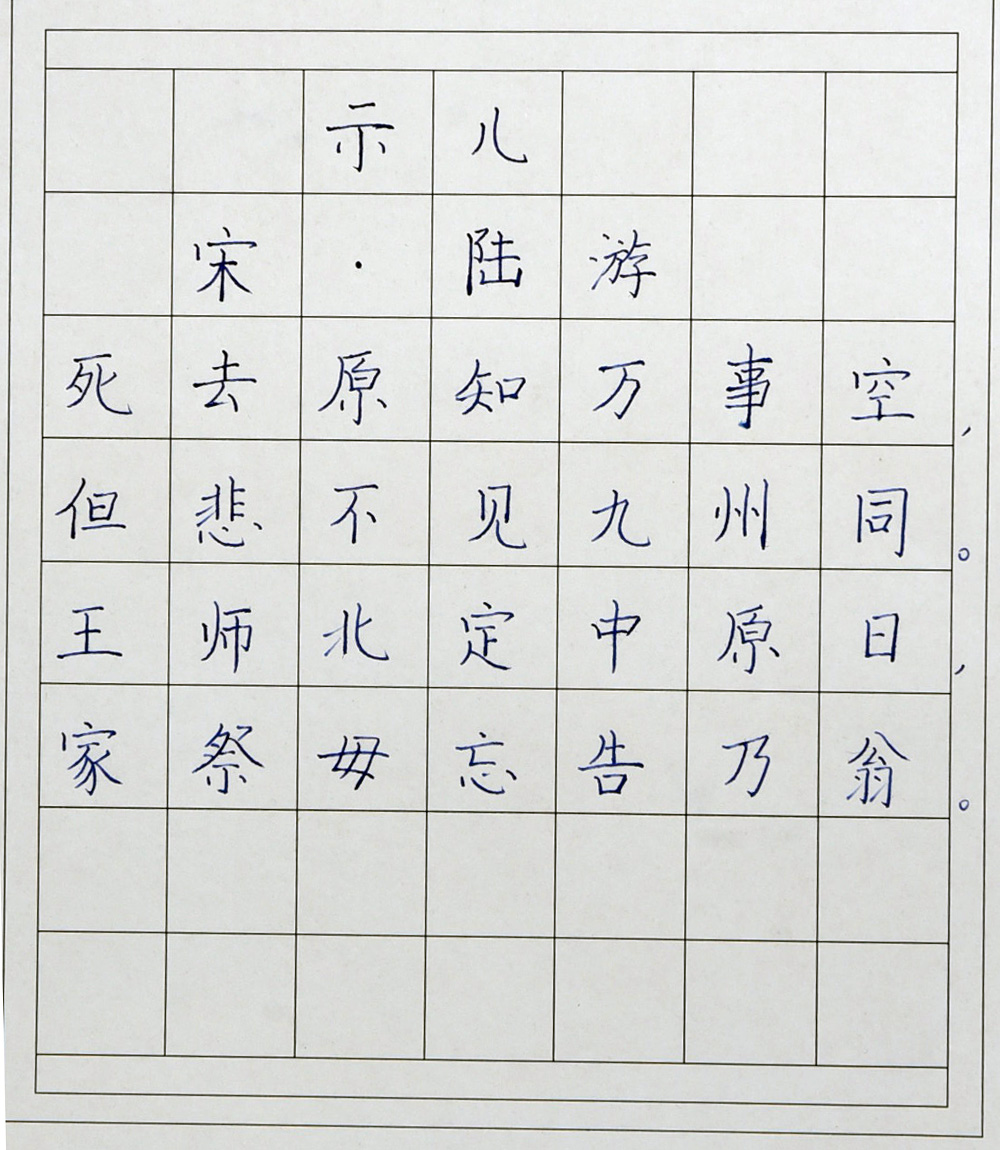 示儿
宋·陆游
死去原知万事空，
但悲不见九州同。
王师北定中原日，
家祭毋忘告乃翁。